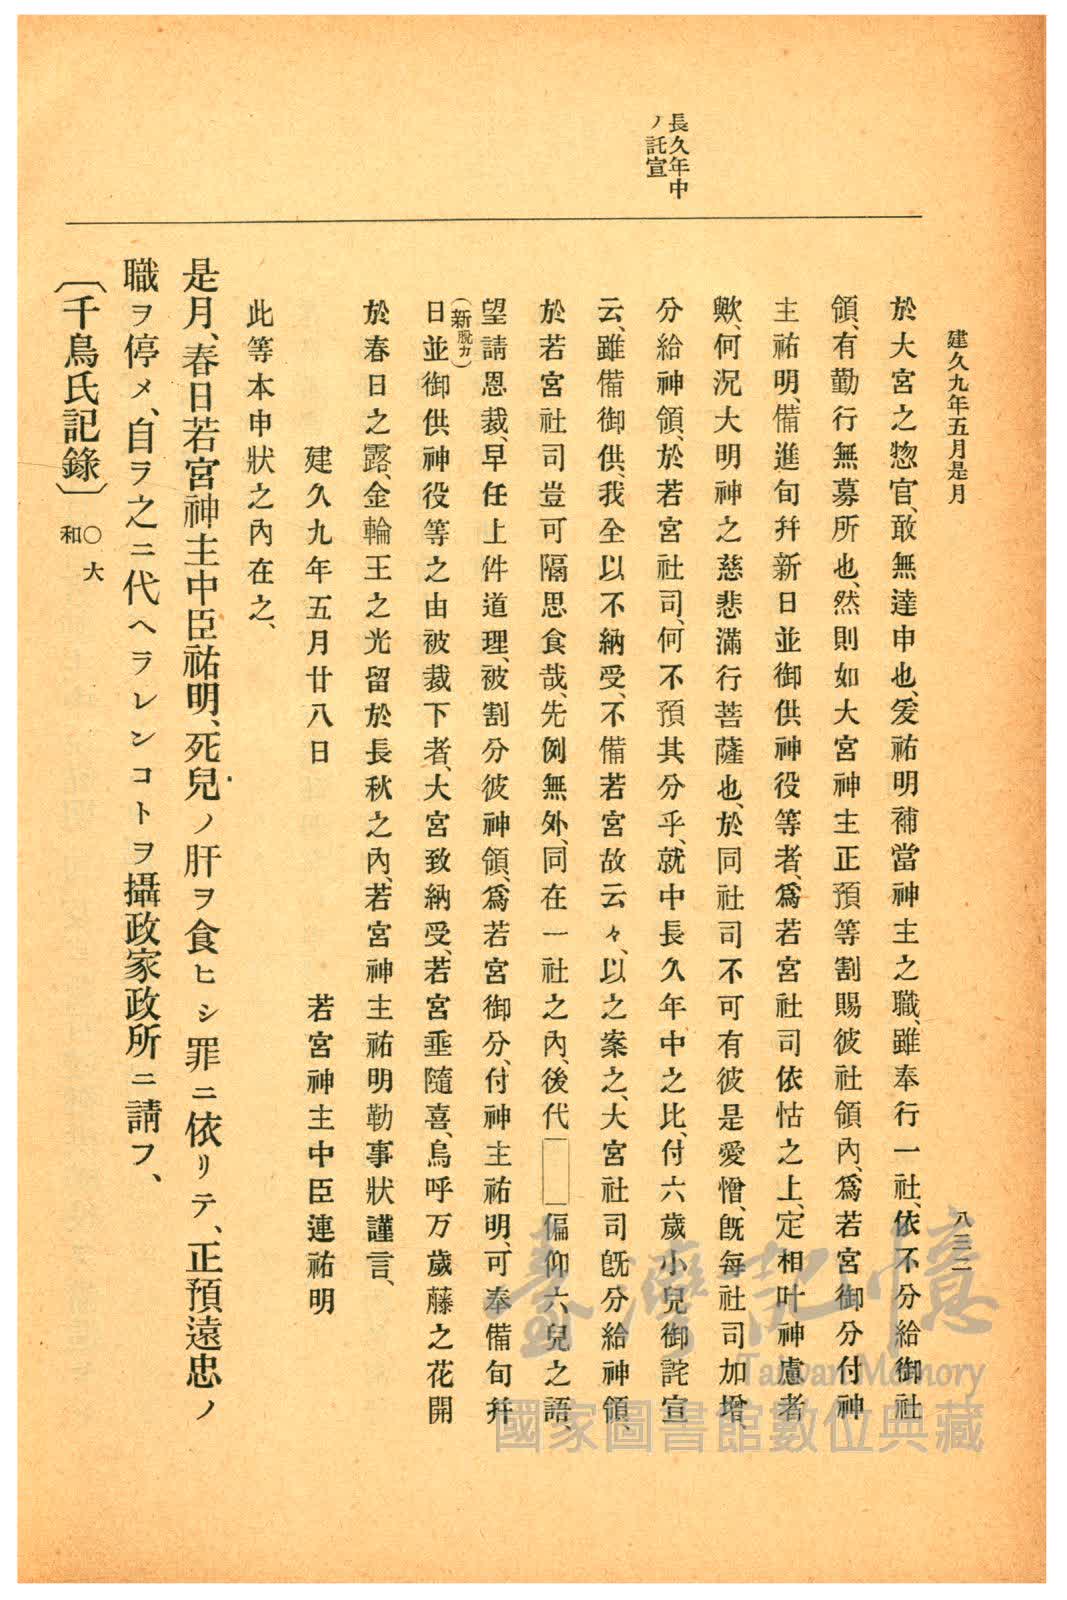 建久九年五月是月
八三二
長久年中
ノ託宣
於大宮之惣官、敢無達申也、爰祐明補當神主之職、雖奉行一社、依不分給御社
領、有勤行無募所也、然則如大宮神主正預等割賜彼社領內、爲若宮御分付神
主祐明、備進旬幷新日並御供神役等者、爲若宮社司依怙之上、定相叶神慮者
歟、何況大明神之慈悲滿行菩薩也、於同社司不可有彼是愛憎、旣每社司加增、
分給神領、於若宮社司、何不預其分乎、就中長久年中之比、付六歲小兒御詫宣
云、雖備御供、我全以不納受、不備若宮故云々、以之案之、大宮社司旣分給神領、
於若宮社司豈可隔思食哉、先例無外、同在一社之內、後代□□偏仰六兒之語、
望請恩裁、早任上件道理、被割分彼神領、爲若宮御分、付神主祐明、可奉備旬幷
(新脫カ)
日並御供神役等之由被裁下者、大宮致納受、若宮垂隨喜、烏呼万歲藤之花開
於春日之露、金輪王之光留於長秋之內、若宮神主祐明勒事狀謹言、
建久九年五月廿八日
若宮神主中臣連祐明
此等本申狀之內在之、
是月、春日若宮神主中臣祐明、死兒ノ肝ヲ食ヒシ罪ニ依リテ、正預遠忠ノ
職ヲ停メ、自ヲ之ニ代ヘラレンコトヲ攝政家政所ニ請フ、
〔千鳥氏記錄〕○大
和
臺灣記憶
Taiwan Memory
國家圖書館數位典藏